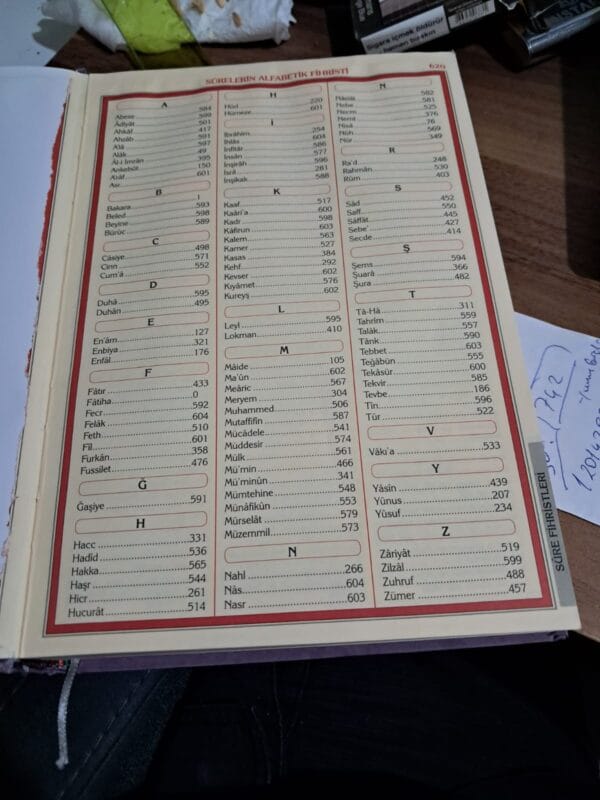 SÛRELERİN ALFABETİK FİHRİSTİ
A
Abese 584
Âdiyât 599
Ahkâf 501
Ahzâb 417
A'lâ 591
Alâk 597
Âl-i İmrân 49
Ankebût 395
A'râf 150
Asr 601
B
Bakara 1
Beled 593
Beyine 598
Bürûc 589
C
Câsiye 498
Cinn 571
Cum'â 552
D
Duhâ 595
Duhân 495
E
En'âm 127
Enbiya 321
Enfâl 176
F
Fâtır 433
Fâtiha 0
Fecr 592
Felâk 604
Feth 510
Fîl 601
Furkân 358
Fussilet 476
Ğ
Ğaşiye 591
H
Hacc 331
Hadîd 536
Hakka 565
Haşr 544
Hicr 261
Hucurât 514
H
Hûd 220
Hümeze 601
İ
İbrâhîm 254
İhlâs 604
İnfitâr 586
İnsân 577
İnşirâh 596
İsrâ 281
İnşikak 588
K
Kaaf 517
Kaâri'a 600
Kadr 598
Kâfirun 603
Kalem 563
Kamer 527
Kasas 384
Kehf 292
Kevser 602
Kıyâmet 576
Kureyş 602
L
Leyl 595
Lokman 410
M
Mâide 105
Ma'ûn 602
Meâric 567
Meryem 304
Muhammed 506
Mutaffifîn 587
Mücâdele 541
Müddesir 574
Mülk 561
Mü'min 466
Mü'minûn 341
Mümtehine 548
Münâfikûn 553
Mürselât 579
Müzemmil 573
N
Nahl 266
Nâs 604
Nasr 603
N
Nâziât 582
Nebe 581
Necm 525
Neml 376
Nisâ 76
Nûh 569
Nûr 349
R
Ra'd 248
Rahmân 530
Rûm 403
S
Sâd 452
Saff 550
Sâffât 445
Sebe' 427
Secde 414
Ş
Şems 594
Şuarâ 366
Şura 482
T
Tâ-Hâ 311
Tahrîm 559
Talâk 557
Târık 590
Tebbet 603
Teğâbün 555
Tekâsür 600
Tekvir 585
Tevbe 186
Tîn 596
Tûr 522
V
Vâkı'a 533
Y
Yâsîn 439
Yûnus 207
Yûsuf 234
Z
Zâriyât 519
Zilzâl 599
Zuhruf 488
Zümer 457
SÛRE FİHRİSTLERİ
Sigara içmek öldürür